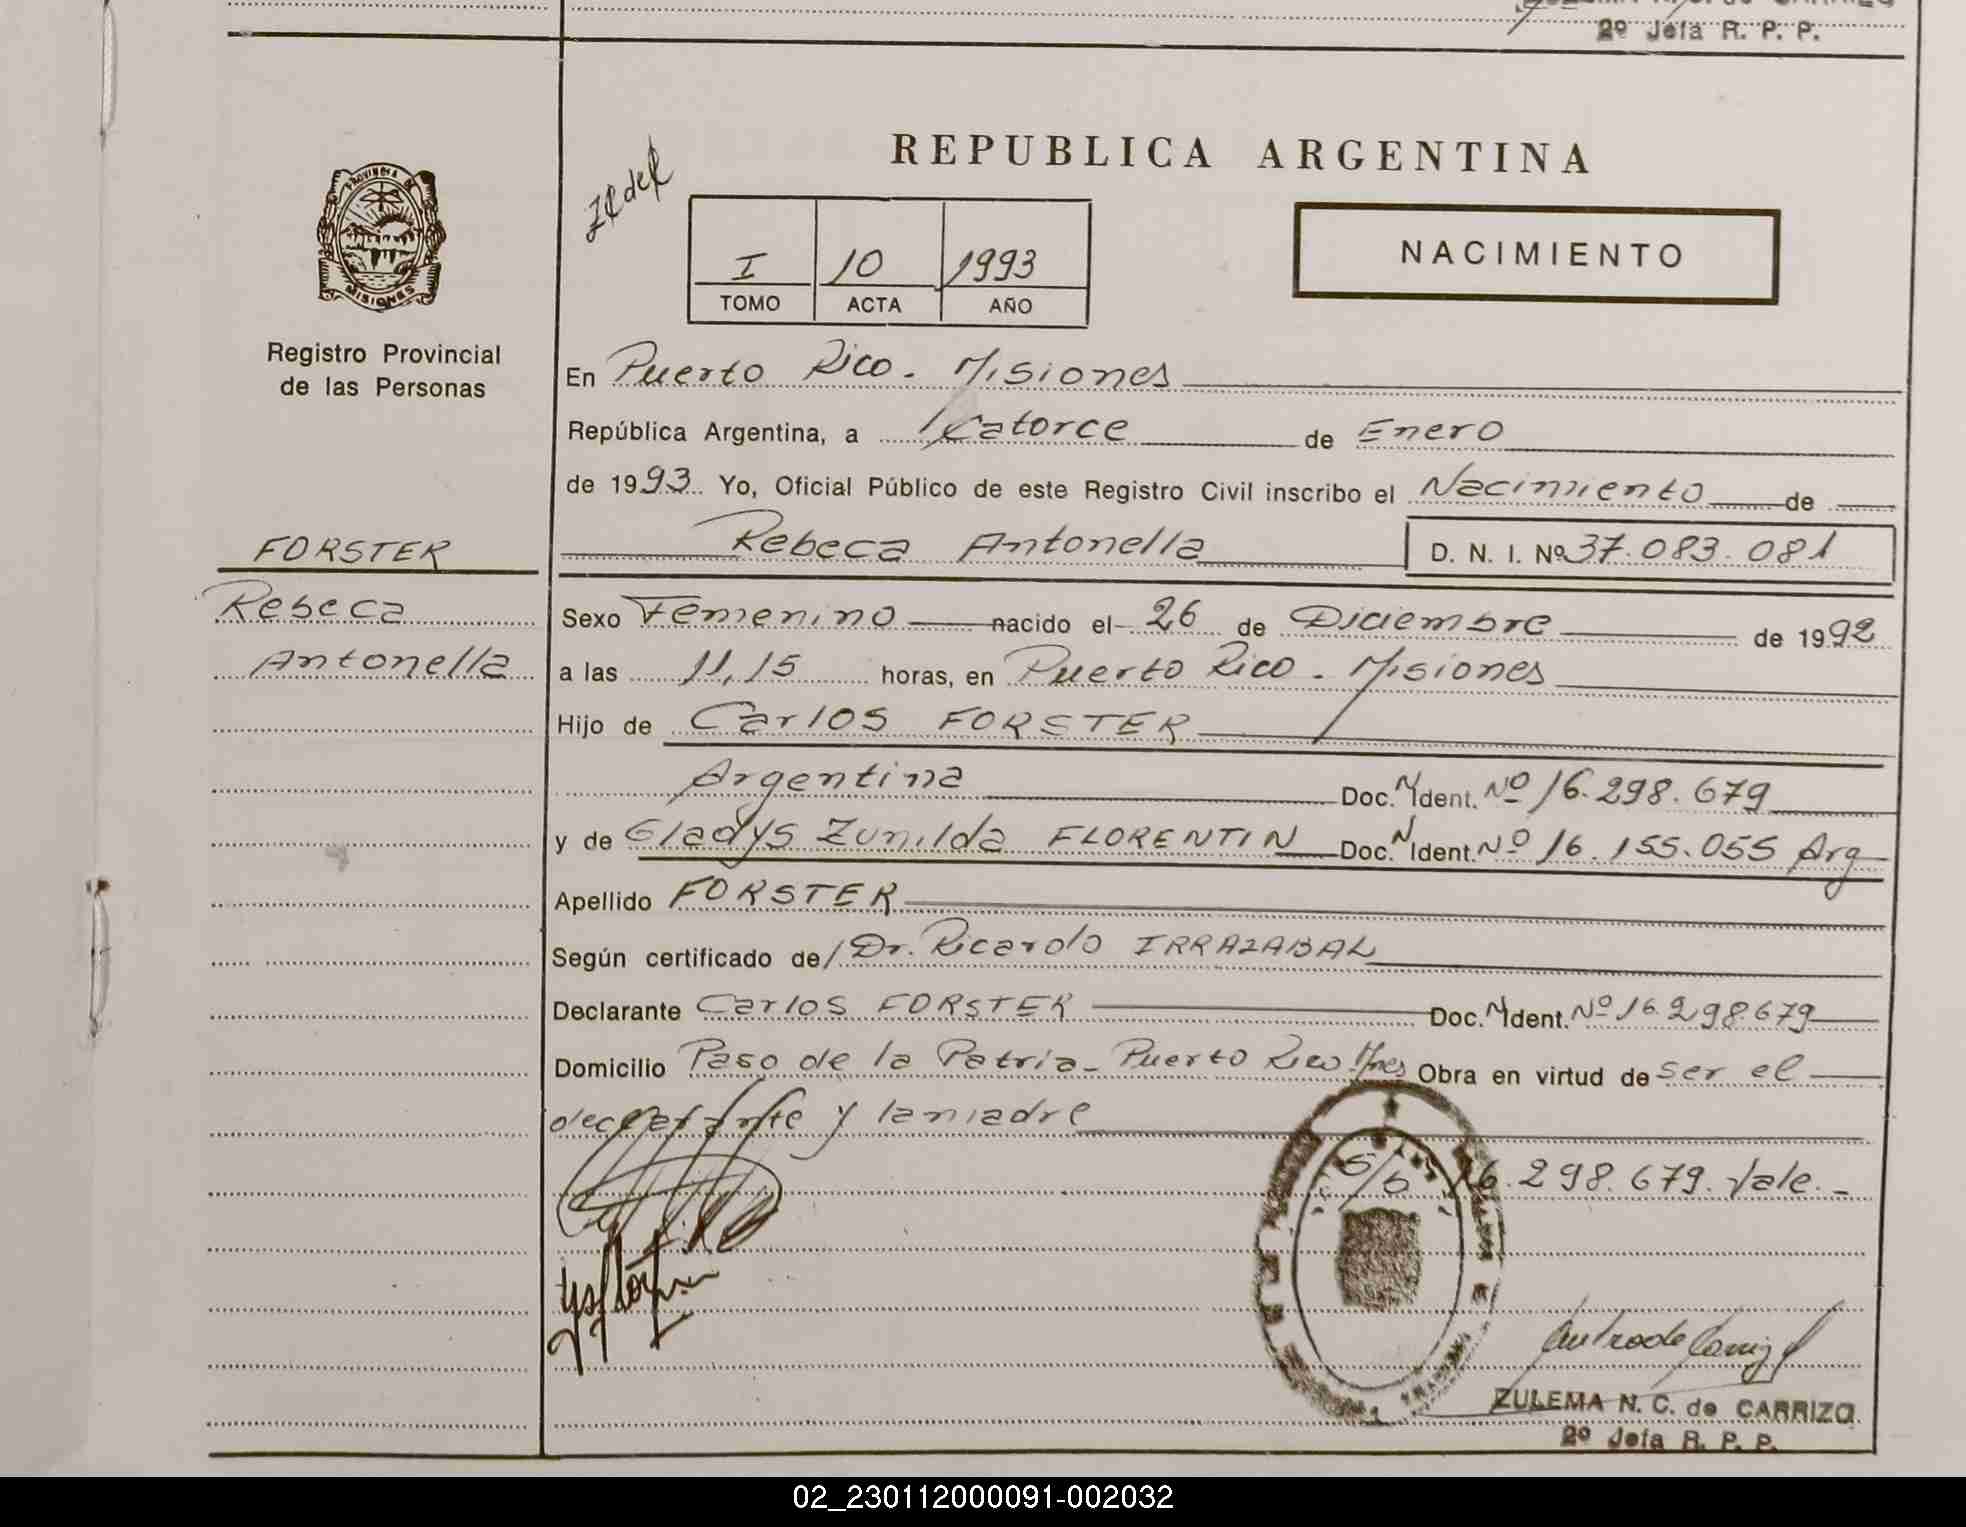 2º Jefa R. P. P.
REPUBLICA ARGENTINA
PROVINCIA DE
MISIONES
I 10 1993
TOMO ACTA AÑO
NACIMIENTO
Registro Provincial
de las Personas
En Puerto Rico. Misiones
República Argentina, a Catorce de Enero
de 1993 Yo, Oficial Público de este Registro Civil inscribo el Nacimiento de
Rebeca Antonella D. N. I. Nº 37.083.081
FORSTER
Rebeca
Antonella
Sexo Femenino nacido el 26 de Diciembre de 1992
a las 11,15 horas, en Puerto Rico. Misiones
Hijo de Carlos FORSTER
Argentina Doc. N Ident. Nº 16.298.679
y de Gladys Zunilda FLORENTIN Doc. N Ident. Nº 16.155.055 Arg
Apellido FORSTER
Según certificado de Dr. Ricardo IRRAZABAL
Declarante Carlos FORSTER Doc. N Ident. Nº 16.298679
Domicilio Paso de la Patria - Puerto Rico Mnes Obra en virtud de ser el
declarante y la madre
S/b 16.298.679. Vale.-
ZULEMA N. C. de CARRIZO
2º Jefa R. P. P.
02_230112000091-002032